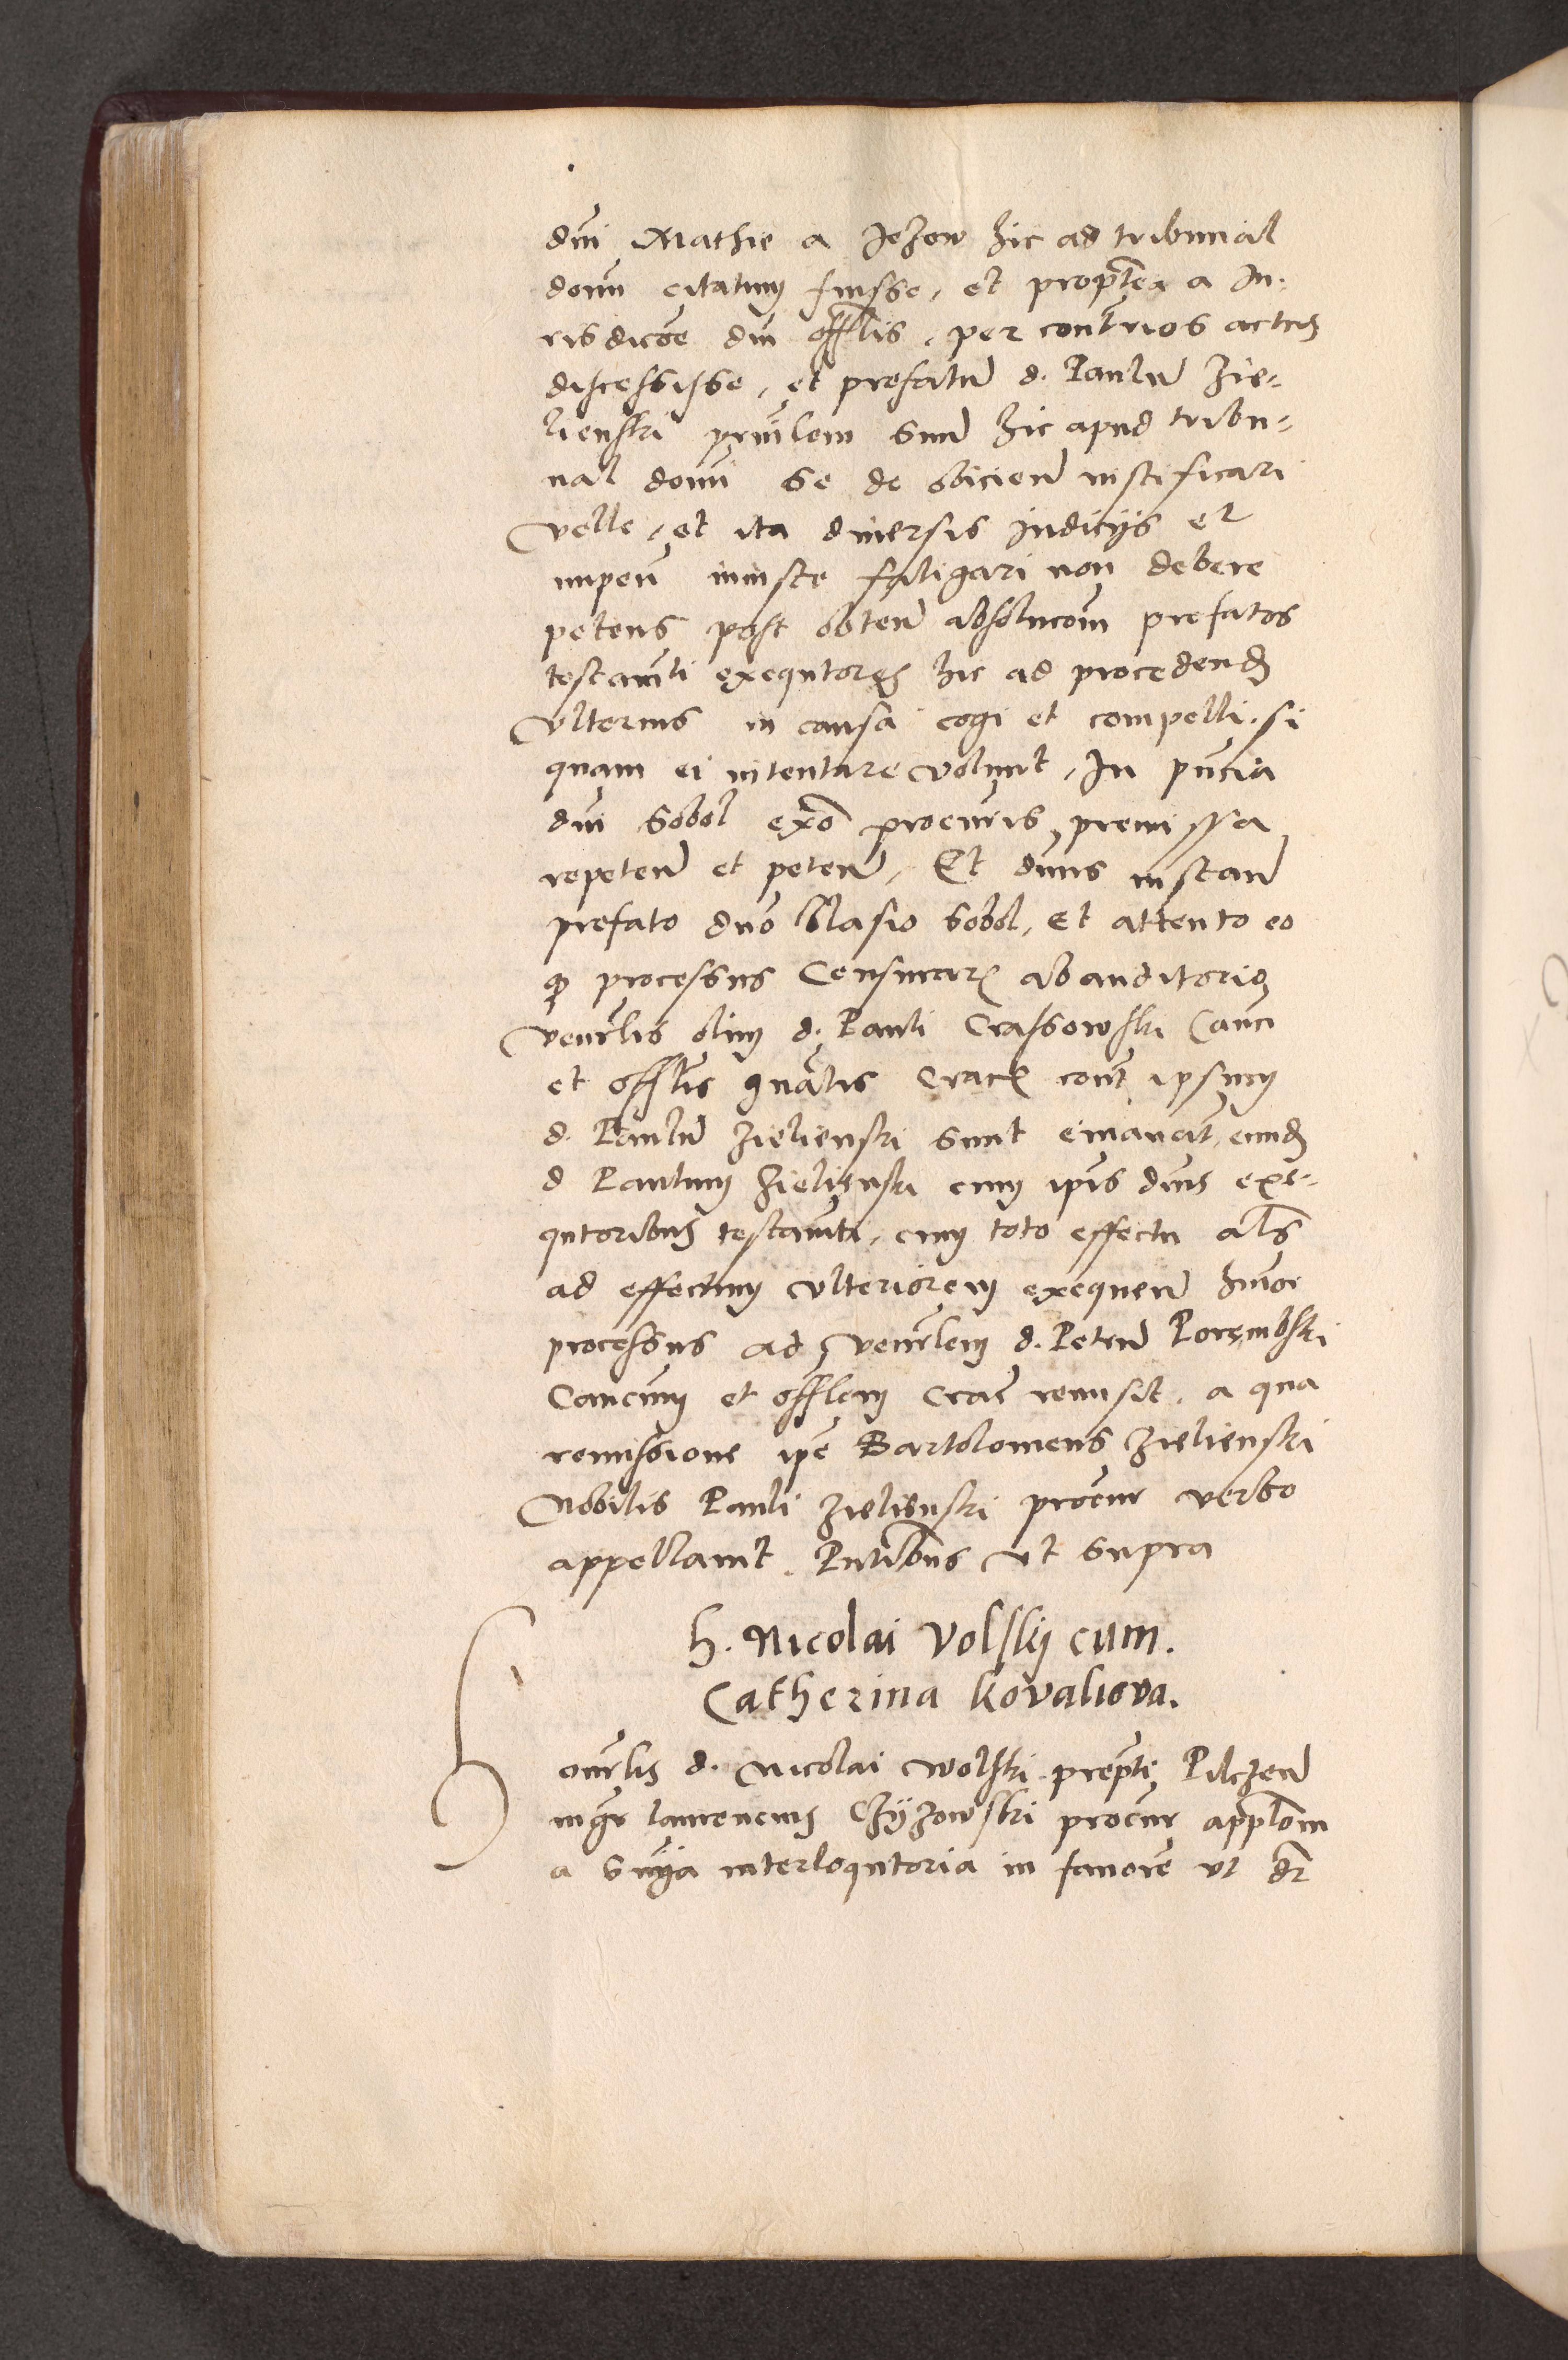 dni Mathie a Jezow hic ad tribunal
domi citatum fuisse, et propterea a Ju-
risdicōe dni offlis, per contrrios actus
discessisse, et prefatum d. Paulum Zie-
lienski prnilem suum hic apud tribu-
nal domi se de obicien iustificari
velle, et ita diuersis Judicijs et
impen iniuste fatigari non debere
petens post obten absolucōm prefatos
testamti exequtores hic ad procedend
vlterius in causa cogi et compelli si
quam ei intentare volunt, In pncia
dni Sobol exō procuris, premissa
repeten et peten, Et dnus instan
prefato dno Blasio Sobol, et attento eo
qz processus Censurar ab auditorio
venrlis olim d. Pauli Crassowski Canci
et offlis gnālis Crac cont ipsum
d. Paulum Zielienski sunt emanat, eund
d Paulum Zielienski cum ipis dnis exe-
qutoribus testamti, cum toto effectu als
ad effectum vlteriorem exequen hmoi
processus ad venrlem d. Petrum Porembski
Cancum et offlem Crac remisit, a qua
remissione ipe Bartolomeus Zielienski
Nobilis Pauli Zielienski procur verbo
appellauit. Pntibus vt supra
h. Nicolai Volskij cum.
Catherina Kovaliova.
Honrlis d. Nicolai Wolski prepti Pilczen
mgr Laurencius Czyzowski procur applom
a snija interloqutoria in fauore vt dr